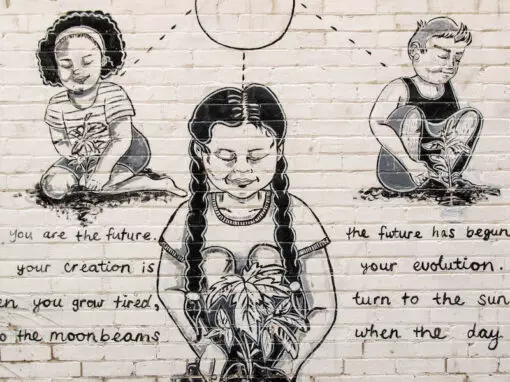 you are the future. the future has begun
your creation is your evolution.
en you grow tired, turn to the sun
o the moonbeams when the day